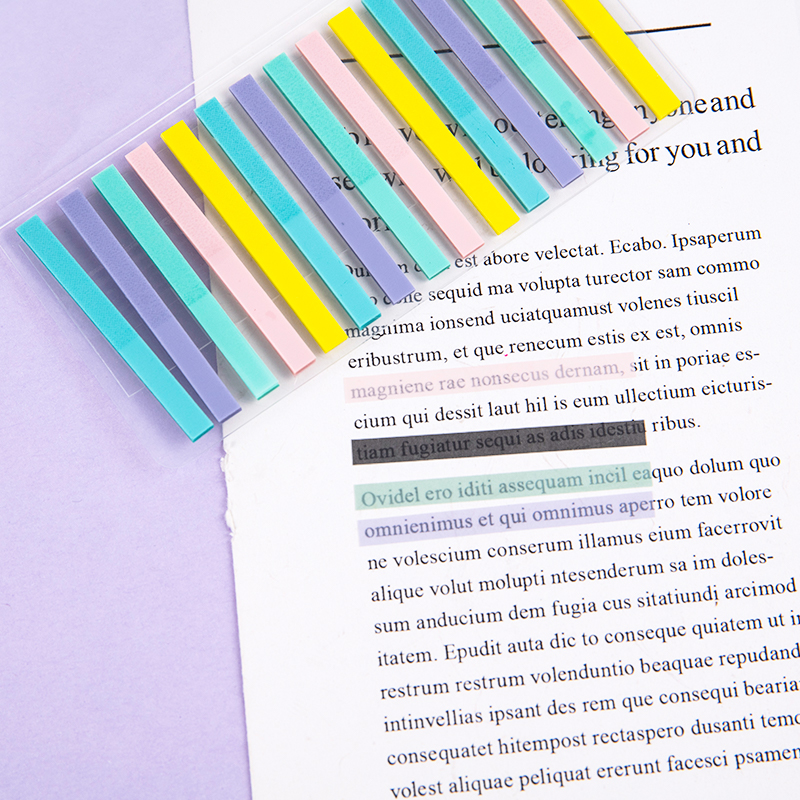 anyone and
looking for you and
est abore velectat. Ecabo. Ipsaperum
sequid ma volupta turector sam commo
magnima ionsend uciatquamust volenes tiuscil
eribustrum, et que renecum estis ex est, omnis
magniene rae nonsecus dernam, sit in poriae es-
cium qui dessit laut hil is eum ullectium eicturis-
tiam fugiatur sequi as adis idestiu ribus.
Ovidel ero iditi assequam incil eaquo dolum quo
omnienimus et qui omnimus aperro tem volore
ne volescium conserum illamus eium facerrovit
alique volut molupti ntesenderum sa im doles-
sum anducium dem fugia cus sitatiundi arcimod
itatem. Epudit auta dic to conseque quiatem ut
restrum restrum volenduntio beaquae repudand
intinvellias ipsant des rem que consequi bearia
consequatet hitempost rectaspero dusanti temo
volest aliquae peliquat ererunt facesci psamen